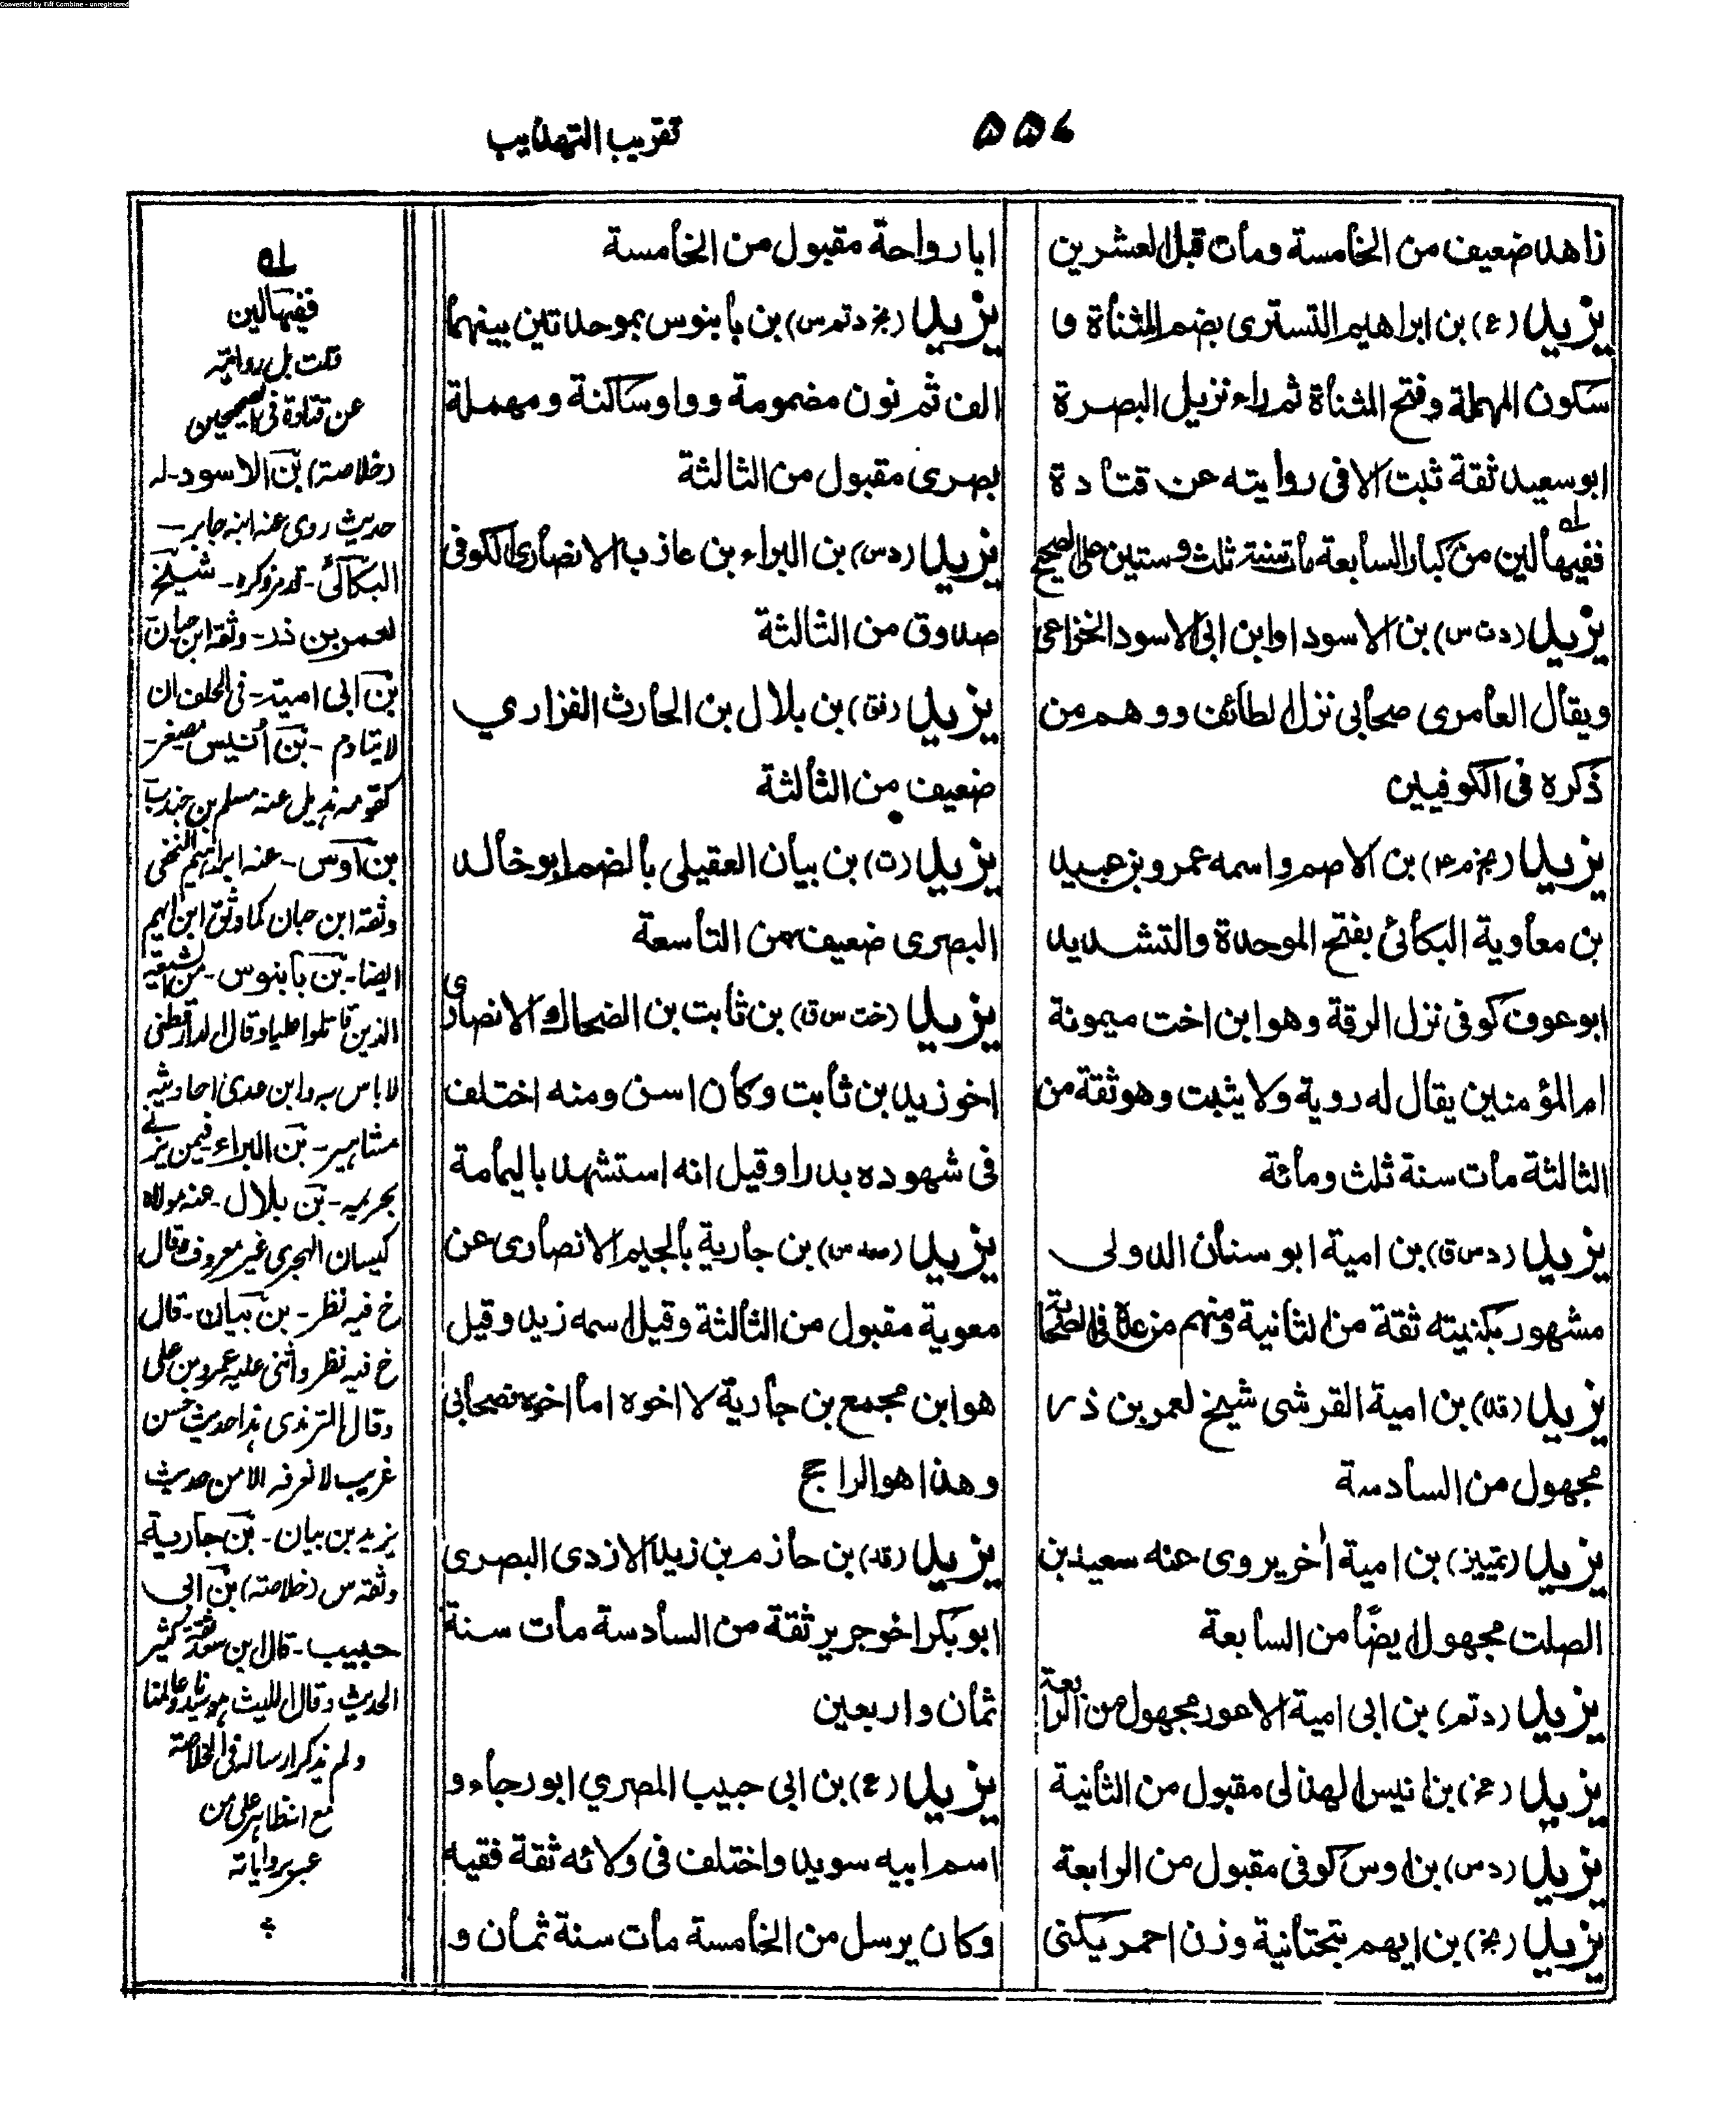 Converted by Tiff Combine - unregistered
۵۵۷
تقریب التهذیب
زاهد ضعيف من الخامسة ومات قبل العشرين
يزيد (ع) بن ابراهيم التسترى بضم المثناة و
سكون المهملة وفتح المثناة ثم راء نزيل البصرة
ابو سعيد ثقة ثبت الا فى روايته عن قتادة
ففيها لين من كبار السابعة مات سنة ثلث وستين على الصحيح
يزيد (د ت س) بن الاسود او ابن ابى الاسود الخزاعى
ويقال العامرى صحابى نزل الطائف ووهم من
ذكره فى الكوفيين
يزيد (بخ م ع) بن الاصم واسمه عمرو بن عبيد
بن معاوية البكائى بفتح الموحدة والتشديد
ابو عوف كوفى نزل الرقة وهو ابن اخت ميمونة
ام المؤمنين يقال له روية ولا يثبت وهو ثقة من
الثالثة مات سنة ثلث ومائة
يزيد (د س ق) بن امية ابو سنان الدولى
مشهور بكنيته ثقة من الثانية ومنهم من عده فى الصحابة
يزيد (قد) بن امية القرشى شيخ لعمر بن ذر
مجهول من السادسة
يزيد (تمييز) بن امية اخر يروى عنه سعيد بن
الصلت مجهول ايضا من السابعة
يزيد (د تم) بن ابى امية الاعور مجهول من الرابعة
يزيد (عخ) بن انيس الهذلى مقبول من الثانية
يزيد (د س) بن اوس كوفى مقبول من الرابعة
يزيد (بخ) بن ايهم بتحتانية وزن احمر يكنى
ابا رواحة مقبول من الخامسة
يزيد (بخ د تم س) بن بابنوس بموحدتين بينهما
الف ثم نون مضمومة وواو ساكنة ومهملة
بصرى مقبول من الثالثة
يزيد (د س) بن البراء بن عازب الانصارى الكوفى
صدوق من الثالثة
يزيد (فق) بن بلال بن الحارث الفزاري
ضعيف من الثالثة
يزيد (ت) بن بيان العقيلى بالضم ابو خالد
البصرى ضعيف من التاسعة
يزيد (خت س ق) بن ثابت بن الضحاك الانصارى
اخو زيد بن ثابت وكان اسن ومنه اختلف
فى شهوده بدرا وقيل انه استشهد باليمامة
يزيد (صد س) بن جارية بالجيم الانصارى عن
معوية مقبول من الثالثة وقيل اسمه زيد وقيل
هو ابن مجمع بن جارية لا اخوه اما اخوه فصحابى
وهذا هو الراجح
يزيد (قد) بن حازم بن زيد الازدى البصرى
ابو بكر اخو جرير ثقة من السادسة مات سنة
ثمان واربعين
يزيد (ع) بن ابى حبيب المصري ابو رجاء و
اسم ابيه سويد واختلف فى ولائه ثقة فقيه
وكان يرسل من الخامسة مات سنة ثمان و
له
ففيها لين
قلت بل روايته
عن قتادة فى الصحيحين
(خلاصة) بن الاسود - له
حديث روى عنه ابنه جابر -
البكائى - قد مر ذكره - شيخ
لعمر بن ذر - وثقه ابن حبان
بن ابى امية - فى الحلف ان
لا يتادم - بن أنيس مصغر -
كقومه هذيل عنه مسلم بن جندب
بن اوس - عنه ابراهيم النخعى
وثقه ابن حبان كما وثق ابن ايهم
ايضا - بن بابنوس - من الشيعة
الذين قاتلوا عليا وقال الدارقطنى
لا باس به وابن عدى احاديثه
مشاهير - بن البراء -
بن بلال - عنه مولاه
كيسان الهجرى غير معروف وقال
خ فيه نظر - بن بيان - قال
خ فيه نظر واثنى عليه عمرو بن على
وقال الترمذى هذا حديث حسن
غريب لا نعرفه الا من حديث
يزيد بن بيان - بن جارية
وثقه س (خلاصة) بن ابى
حبيب - قال ابن سعد ثقة كثير
الحديث وقال الليث هو سيدنا وعالمنا
ولم يذكر ارساله فى الخلاصة
مع انه ظاهر على من
عبر رواياته